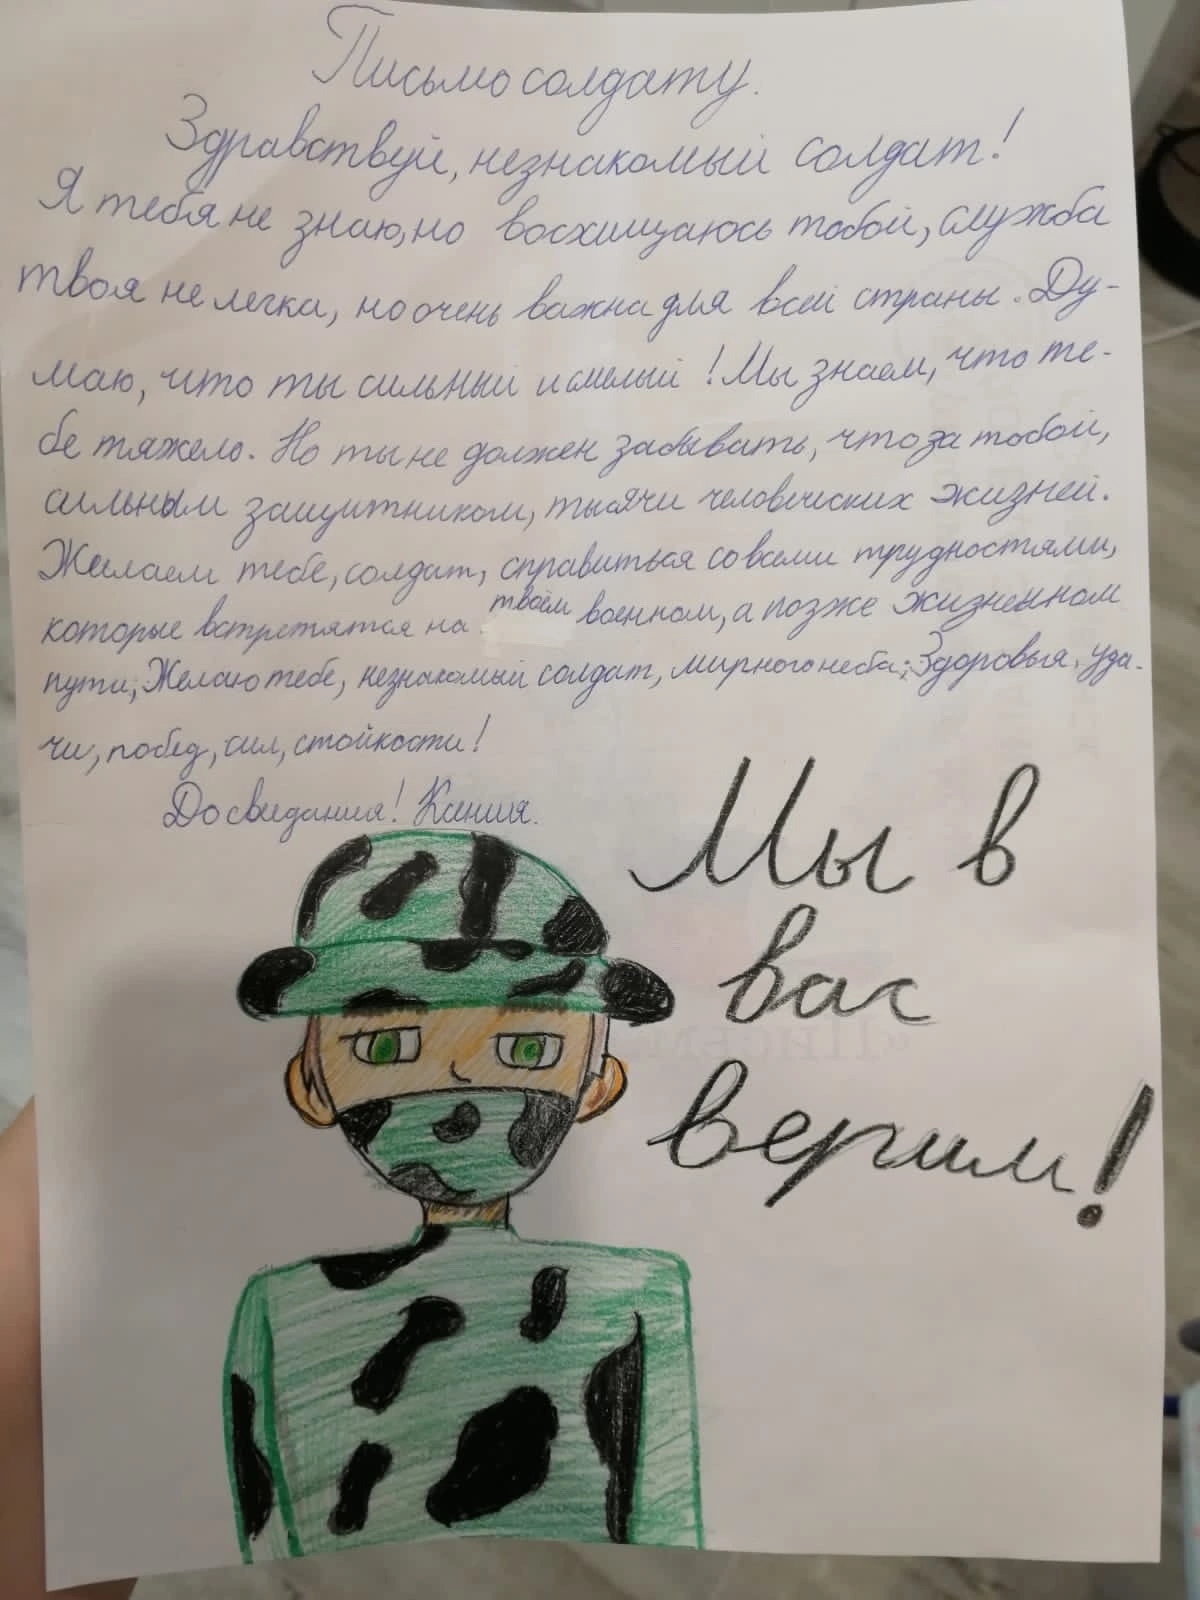 Письмо солдату.
Здравствуй, незнакомый солдат!
Я тебя не знаю, но восхищаюсь тобой, служба
твоя не легка, но очень важна для всей страны. Ду-
маю, что ты сильный и смелый! Мы знаем, что те-
бе тяжело. Но ты не должен забывать, что за тобой,
сильным защитником, тысячи человеческих жизней.
Желаем тебе, солдат, справиться со всеми трудностями,
которые встретятся на твоём военном, а позже жизненном
пути, Желаю тебе, незнакомый солдат, мирного неба; Здоровья, уда-
чи, побед, сил, стойкости!
До свидания! Ксения.
Мы в
вас
верим!